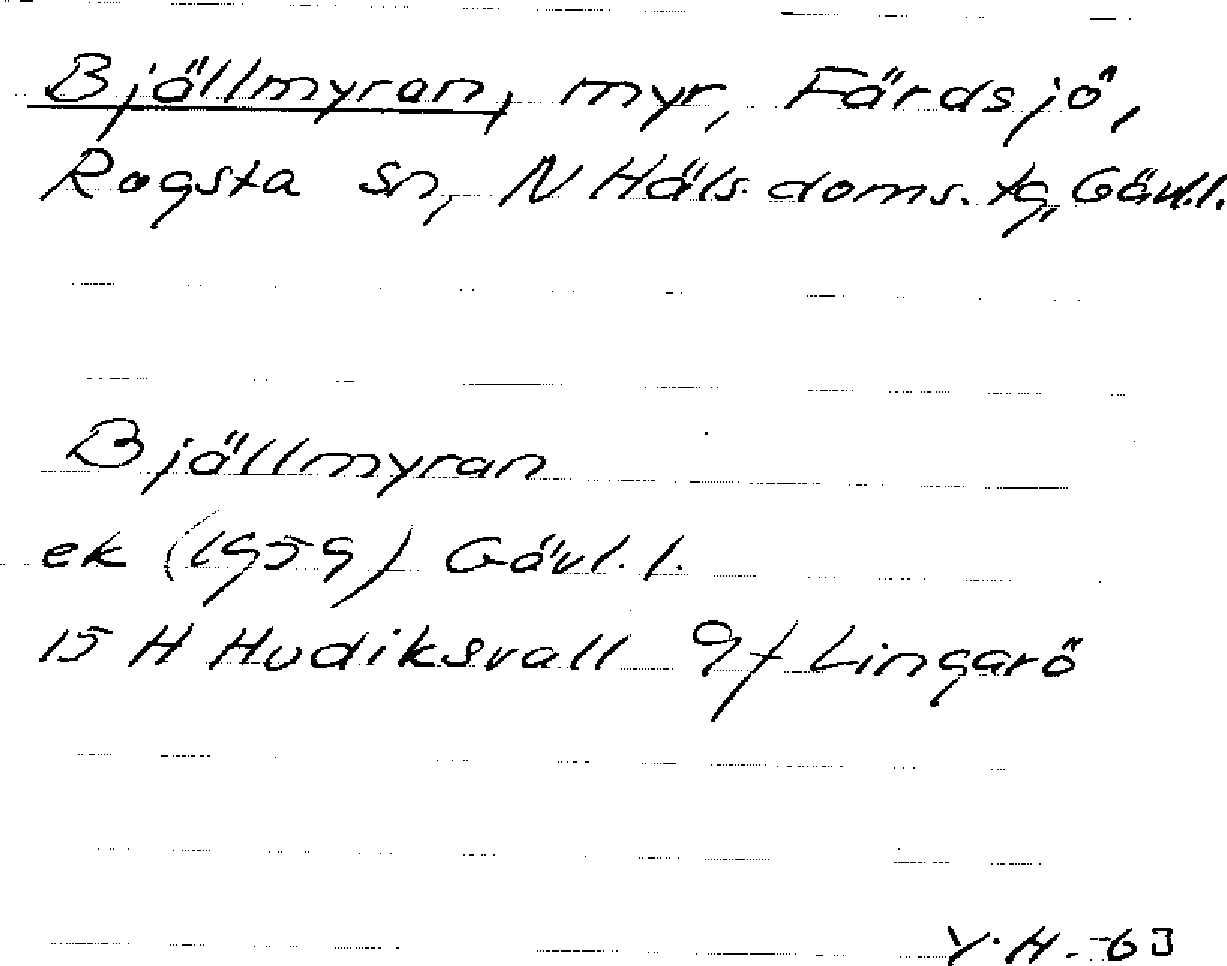 Bjällmyran, myr, Färdsjö,
Rogsta sn, N Häls. doms. tg, Gävl.l.
Bjällmyran
ek (1959) Gävl.l.
15 H Hudiksvall 9f Lingarö
Y.H.-63